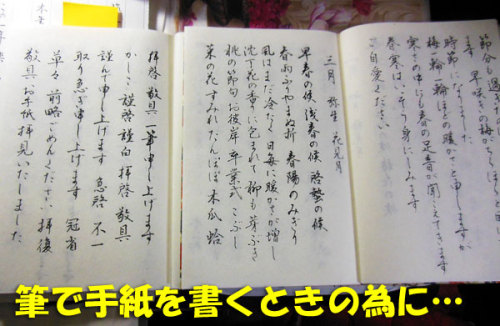 節分も過ぎ
早咲きの梅がちらほら
時節になりました
梅一輪一輪ほどの暖かさと申しますが
寒さの中にも春の足音が聞こえてきます
春寒はいっそう身にしみます
ご自愛ください
三月 弥生 花見月
早春の候 浅春の候 啓蟄の候
春雨ふりやまぬ折 春陽のみぎり
風はまだ冷たく 日毎に暖かさが増し
沈丁花の香りに包まれて 柳も芽ぶき
桃の節句 お彼岸 卒業式 こぶし
菜の花 すみれ たんぽぽ 木瓜 蛤
拝啓 敬具 一筆申し上げます
かしこ 謹啓 謹白 拝啓 敬具
謹んで申し上げます 急啓 不一
取り急ぎ申し上げます 冠省
草々 前略ごめんください 拝復
敬具 お手紙拝見いたしました
筆で手紙を書くときの為に…